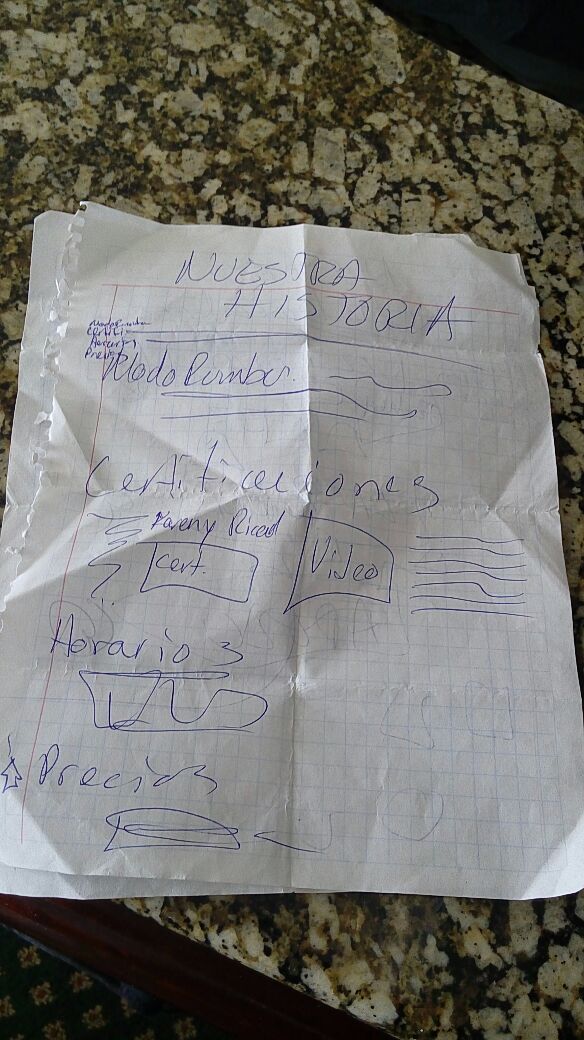 NUESTRA
HISTORIA
Modo Rumba
Certifi
Horarios
Precios
Modo Rumba.
Certificaciones
Karen y Ricard
Cert.
Video
Horarios
Precios